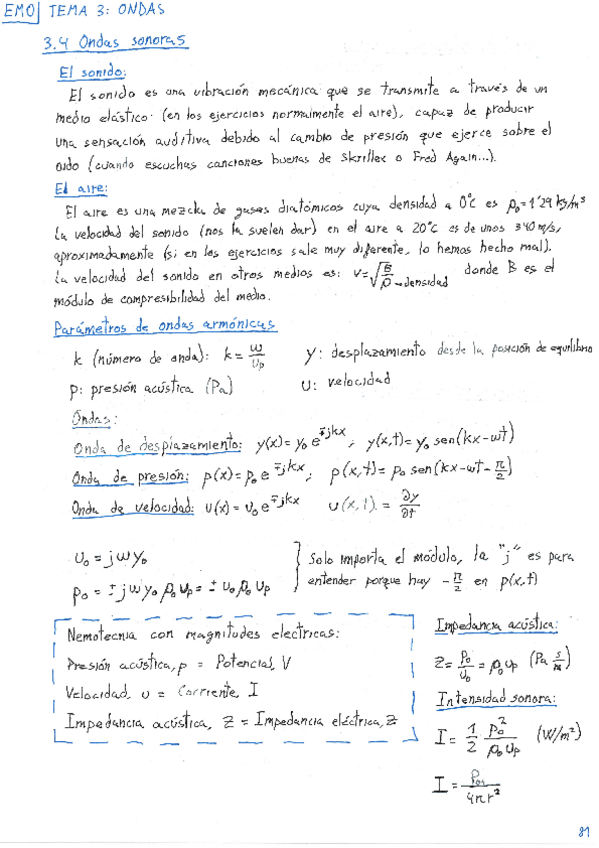 EMO TEMA 3: ONDAS
3.4 Ondas sonoras
El sonido:
El sonido es una vibración mecánica que se transmite a través de un
medio elástico (en los ejercicios normalmente el aire), capaz de producir
una sensación auditiva debido al cambio de presión que ejerce sobre el
oido (cuando escuchas canciones buenas de Skrillex o Fred Again...).
El aire:
El aire es una mezcla de gases diatómicos cuya densidad a 0°C es ρ₀=1'29 kg/m³
La velocidad del sonido (nos la suelen dar) en el aire a 20°C es de unos 340 m/s,
aproximadamente (si en los ejercicios sale muy diferente, lo hemos hecho mal).
La velocidad del sonido en otros medios es: v=√(B/ρ) → densidad donde B es el
módulo de compresibilidad del medio.
Parámetros de ondas armónicas
k (número de onda): k = ω/Up y: desplazamiento desde la posición de equilibrio
p: presión acústica (Pa) U: velocidad
Ondas:
Onda de desplazamiento: y(x)=y₀ e^∓jkx; y(x,t)=y₀ sen(kx-ωt)
Onda de presión: p(x)=p₀ e^∓jkx; p(x,t)=p₀ sen(kx-ωt-π/2)
Onda de velocidad: U(x)=U₀ e^∓jkx U(x,t) = ∂y/∂t
U₀=jωy₀
p₀ = ±jωy₀ ρ₀Up = ±U₀ρ₀Up
Solo importa el módulo, la "j" es para
entender porque hay -π/2 en p(x,t)
Nemotecnia con magnitudes electricas:
Presión acústica, p = Potencial, V
Velocidad, U = Corriente, I
Impedancia acústica, Z = Impedancia eléctrica, Z
Impedancia acústica:
Z= p₀/U₀ = ρ₀Up (Pa s/m)
Intensidad sonora:
I= 1/2 p₀²/ρ₀Up (W/m²)
81